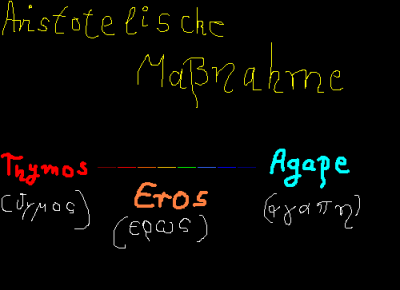 Aristotelische
Maßnahme
Thymos Agape
Eros
(ϑγμος) (αγαπη)
(ερως)